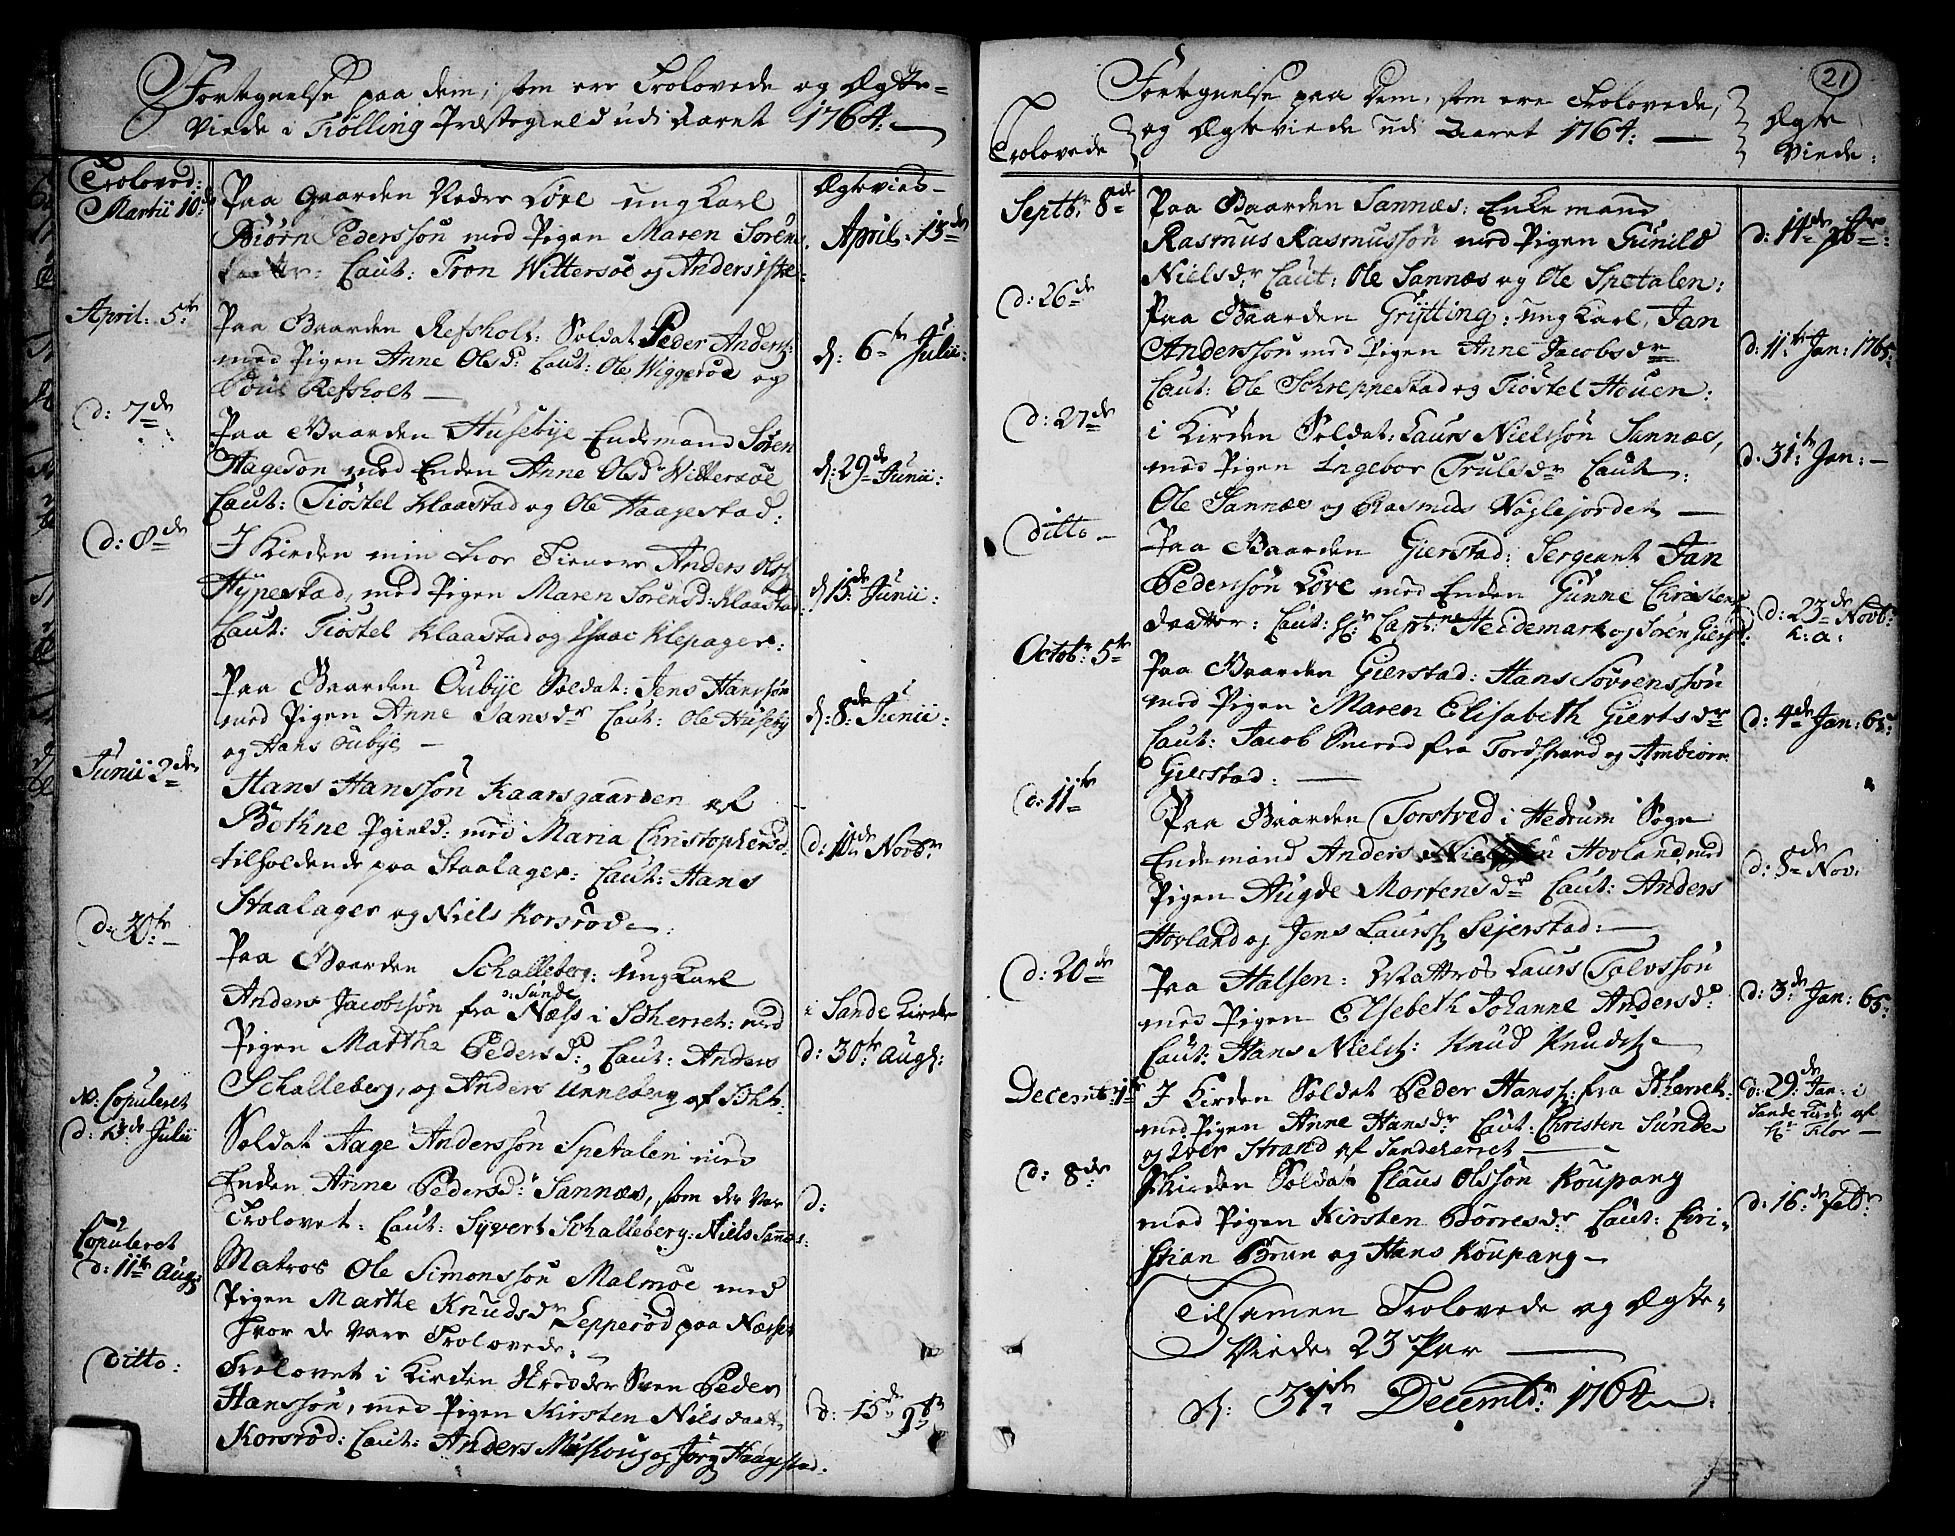 Fortegnelse paa dem, som ere Trolovede og Ægte-
Viede i Tiølling Præstegield udi Aaret 1764:
Troloved:
Ægtevied
Martii 10de
Paa Gaarden Nedre Löve ung Karl
Biørn Pederssön med Pigen Maren Sören
daatter: Caut: Tron Wittersöe og Anders
April: 13de
April: 5te
Paa Gaarden Refsholt: Soldat Peder Anders:
med Pigen Anne Olsdr Caut: Ole Wiggersöe og
Poul Refsholt
d: 6te Julii:
d: 7de
Paa Gaarden Husebÿe Enckemand Sören
Hageson med Encken Anne Olsdr Wittersöe
Caut: Tiöstel Klaastad og Ole Haagestad:
d: 29de Junii:
d: 8de
I Kircken min Tienere Anders Ols:
Hÿpestad, med Pigen Maren Sörensd: Klaastad
Caut: Tiöstel Klaastad og Isaac Klepager:
d 15de Junii:
Paa Gaarden Oubÿe Soldat: Jens Hanssön
med Pigen Anne Jansdr Caut: Ole Husebÿ
og Hans Oubÿe
d: 8de Junii:
Junii 2den
Hans Hanssön Kaarsgaarden af
Bothne Pgield: med Maria Christophersd:
tilholdende paa Staalager: Caut: Hans
Staalager og Niels Korsröd
d: 10de Novbr
d: 20te
Paa Gaarden Schalleberg: Ung Karl
Anders Jacobssön fra Næss i Sdherret: med
o: Sunde
Pigen Marthe Pedersdr, Caut: Anders
Schalleberg, og Anders Unneberg af Sdht:
i Sande Kircke
d: 30te Aug:
No: Copuleret
d: 13de Julii
Soldat Aage Anderssön Spetalen med
Encken Anne Pedersdr Sannæs, som der var
Trolovet: Caut: Syvert Schalleberg: Niels Sannæs:
d:
Copuleret
d: 11te Aug:
Matros Ole Simonssön Malmöe med
Pigen Marthe Knudsdr Lepperöd paa Næsset
hvor de vare Trolovede:
ditto:
Trolovet i Kircken Skrædder Sven Peder
Hanssön, med Pigen Kirsten Nilsdaat:
Korsröd: Caut: Anders Möskoug og Jörg Haagestad:
d: 15de 9br
21
Fortegnelse paa Dem, som ere Trolovede,
og Ægteviede udi Aaret 1764:
Trolovede
Ægte
Viede:
Septbr 8de
Paa Gaarden Sannæs: Enkemand
Rasmus Rasmussön med Pigen Gunild
Nielsdr Caut: Ole Sannæs og Ole Spetalen:
d: 14de
d: 26de
Paa Gaarden Grÿtting: ung Karl, Jan
Anderssön med Pigen Anne Jacobsdr
Caut: Ole Schreppestad og Tiöstel Houen:
d: 11te Jan: 1765:
d: 27de
i Kircken Soldat: Laurs Nielssön Sannæs,
med Pigen Ingebor Trulsdr Caut:
Ole Sannæs og Rasmus Nöglejordet
d. 31te Jan:
ditto
Paa Gaarden Gierstad: Sergeant Jan
Pederssön Löve med Encken Gunne Christens
daatter: Caut: Hr Captne Heidemark og Sören Gierst:
d: 23de Novbr
h: a:
Octobr: 5te
Paa Gaarden Gierstad: Hans Sörenssön
med Pigen Maren Elisabeth Giertsdr
Caut: Jacob Smeröd fra Tordstrand og Ambiörn
Gierstad:
d: 4de Jan: 65:
d: 11te
Paa Gaarden Torstved i Hedrum Sogn
Enckemand Anders Hovland med
Pigen Augde Mortensdr Caut: Anders
Hovland og Jens Laurs: Sejerstad:
d: 8de Nov:
d: 20de
Paa Halsen: Mattros Laurs Talvssön
med Pigen Elsebeth Johanne Andersdr
Caut: Hans Nielss: Knud Knuds:
d: 3de Jan: 65:
Decembr: 1te
I Kircken Soldat Peder Hans: fra Sdherret:
med Pigen Anne Hansdr Caut: Christen Sunde
og Iver Strand af Sandeherret
d: 29de Jan: i
Sande Kirke af
Hr Flor
d: 8de
I Kircken Soldat Claus Olssön Koupang
med Pigen Kirsten Börresdr Caut: Chri-
stian Brun og Hans Koupang
d: 16de Febr:
Tilsamen Trolovede og Ægte-
Viede: 23 Par
d: 31te Decembr: 1764